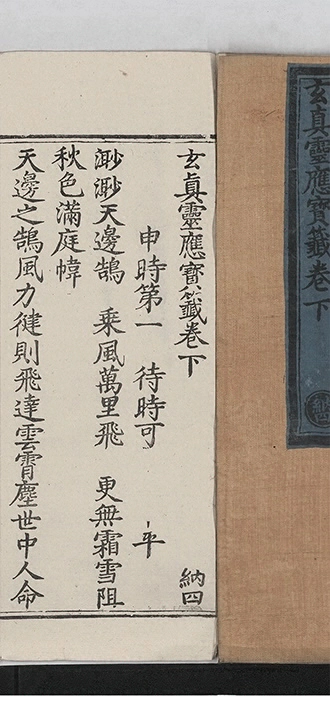 玄真靈應寳籤卷下
玄眞靈應寳籤卷下
納四
申時第一　待時可　平
渺渺天邊鵠　乘風萬里飛　更無霜雪阻
秋色滿庭幃
天邊之鵠風力健則飛達雲霄塵世中人命